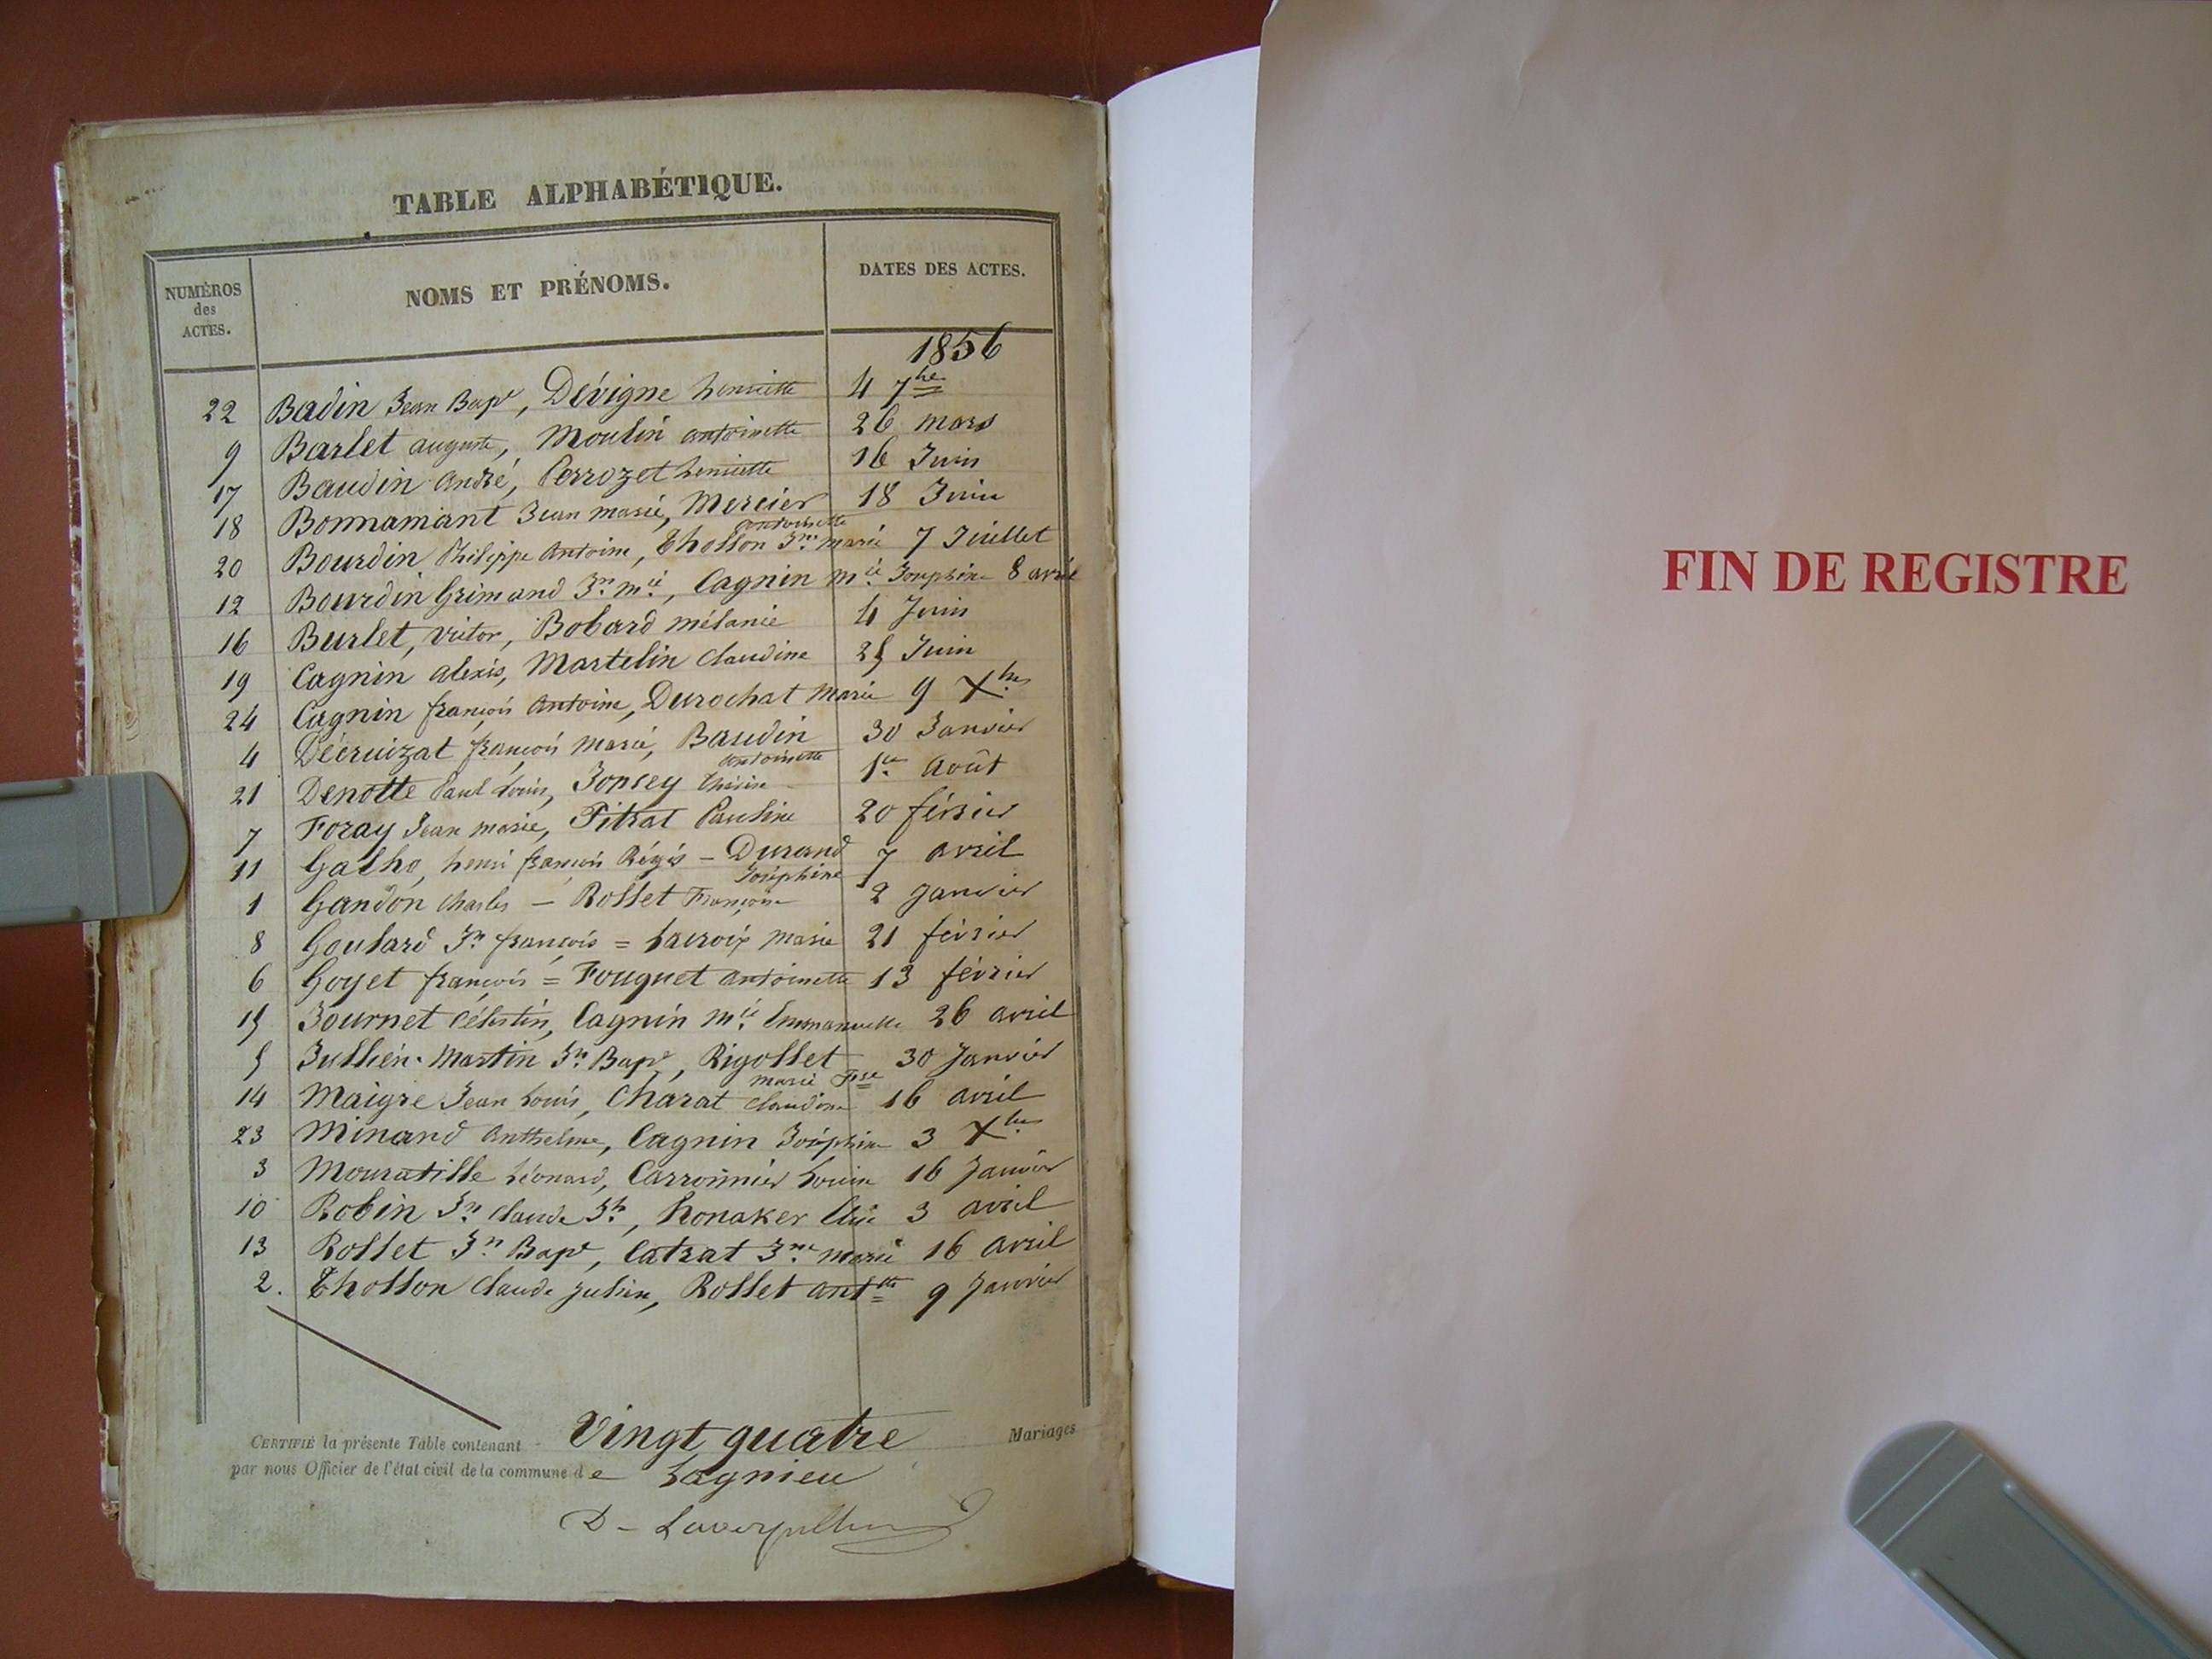 TABLE ALPHABÉTIQUE.
NUMÉROS des ACTES. NOMS ET PRÉNOMS. DATES DES ACTES.
1856
22 Badin Jean Bapte, Dévigne henriette 4 7bre
9 Barlet auguste, Moulin antoinette 26 mars
17 Baudin André, Perrozet henriette 16 Juin
18 Bonnamant Jean marie, Mercier antoinette 18 Juin
20 Bourdin Philippe Antoine, Thollon Jne marie 7 Juillet
12 Bourdin Grimaud Jn mie, Cagnin mie Josephine 8 avril
16 Burlet, victor, Bobard mélanie 4 Juin
19 Cagnin alexis, Martelin Claudine 25 Juin
24 Cagnin françois Antoine, Durochat Marie 9 Xbre
4 Décruizat françois Marie, Baudin antoinette 30 Janvier
21 Denotte Paul Louis, Thérèse 1er Août
7 Foray Jean marie, Pitrat Pauline 20 février
11 henri françois Régis - Durand Joséphine 7 avril
1 Gandon Charles - Rollet Françoise 2 Janvier
8 Goulard Jn françois = Lacroix marie 21 février
6 Goyet françois = Fouquet antoinette 13 février
15 Journet Célestin, Cagnin mie Emmanuelle 26 avril
5 Jullien-Martin Jn Bapte, Rigollet marie Fse 30 Janvier
14 Maigre Jean Louis, Charat Claudine 16 avril
23 Minand Anthelme, Cagnin Joséphine 3 Xbre
3 Mouratille Léonard, Carronnier Louise 16 Janvier
10 Robin Jn Claude Jh, Honaker 3 avril
13 Rollet Jn Bapte, Catrat Jne marie 16 Avril
2. Thollon Claude Julien, Rollet antte 9 Janvier
CERTIFIÉ la présente Table contenant Vingt quatre Mariages
par nous Officier de l'état civil de la commune de Lagnieu
FIN DE REGISTRE